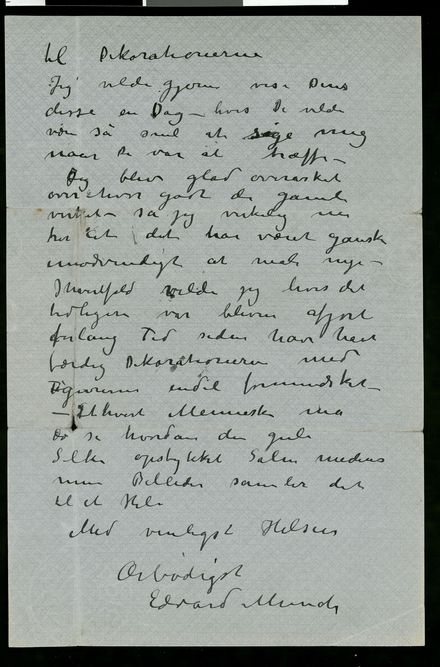 til Dekorationerne
Jeg vilde gjerne vise Dem
disse en Dag – hvis De vilde
være så snil at sige mig
naar De var at træffe –
Jeg blev glad overrasket
over hvor godt de gamle
virket – så jeg virkelig nu
tror at det har været ganske
unødvendigt at male nye –
I hvertfald vilde jeg hvis det
tidligere var bleven afgjort
for lang Tid siden have havt
færdig Dekorationerne med
Figurerne endel formindsket –
– Ethvert Menneske må
se hvordan den gule
Silke opstykket Salen medens
mine Billeder samler det
til et Hele
Med venligst Hilsen
Ærbødigst
Edvard Munch